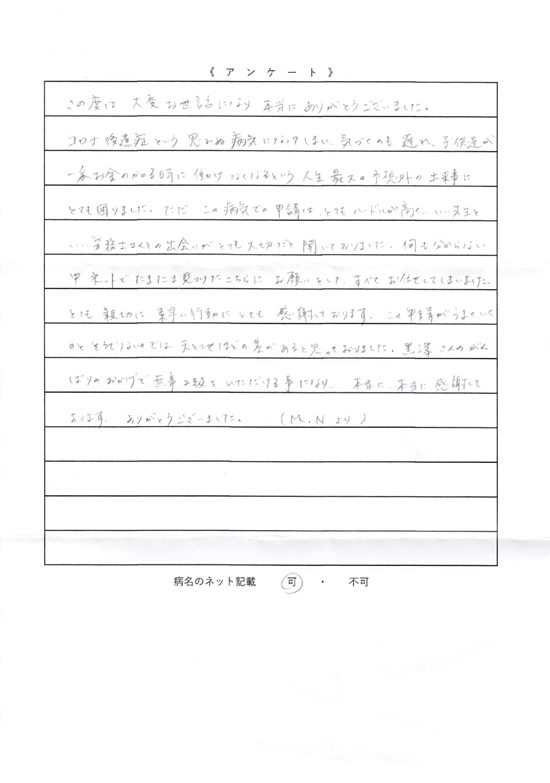 《アンケート》
この度は 大変 お世話になり 本当に ありがとうございました。
コロナ後遺症という 思わぬ 病気になってしまい、気づくのも 遅れ、子供達が
一番お金のかかる時に 働けなくなるという 人生最大の予想外の出来事に
とても困りました。ただ この病気での申請は、とてもハードルが高く、いい先生と
いい労務士さんとの出会いがとても大切だと聞いておりました。何も分からない
中 ネットでたまたま見つけたこちらに お願いをして、すべて お任せしてしまいました。
とても 親切に 素早い行動に とても 感謝しております。この申請がうまくいく
のと そうでないのでは 天と地ほどの差があると思っておりました。黒澤さんのがん
ばりのおかげで 無事2級を いただける事になり、本当に、本当に感謝して
おります。ありがとうございました。 (M.Nより)
病名のネット記載 可 ・ 不可